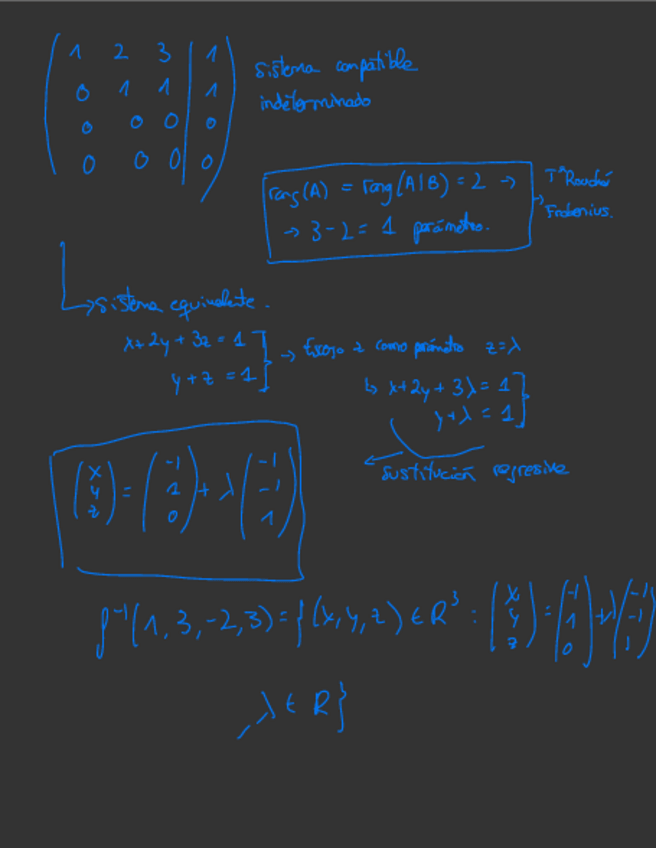 1 2 3 | 1
0 1 1 | 1
0 0 0 | 0
0 0 0 | 0
Sistema compatible
indeterminado
rang(A) = rang(A|B) = 2 →
→ 3-2 = 1 parámetro.
→ Tª Rouché
Frobenius.
→ Sistema equivalente.
x+2y+3z = 1
y+z = 1
→ Escojo z como parámetro z=λ
↳ x+2y+3λ = 1
y+λ = 1
Sustitución regresiva
(x y z) = (-1 1 0) + λ (-1 -1 1)
f⁻¹(1,3,-2,3) = {(x,y,z) ∈ R³ : (x y z) = (-1 1 0) + λ (-1 -1 1)
, λ ∈ R}